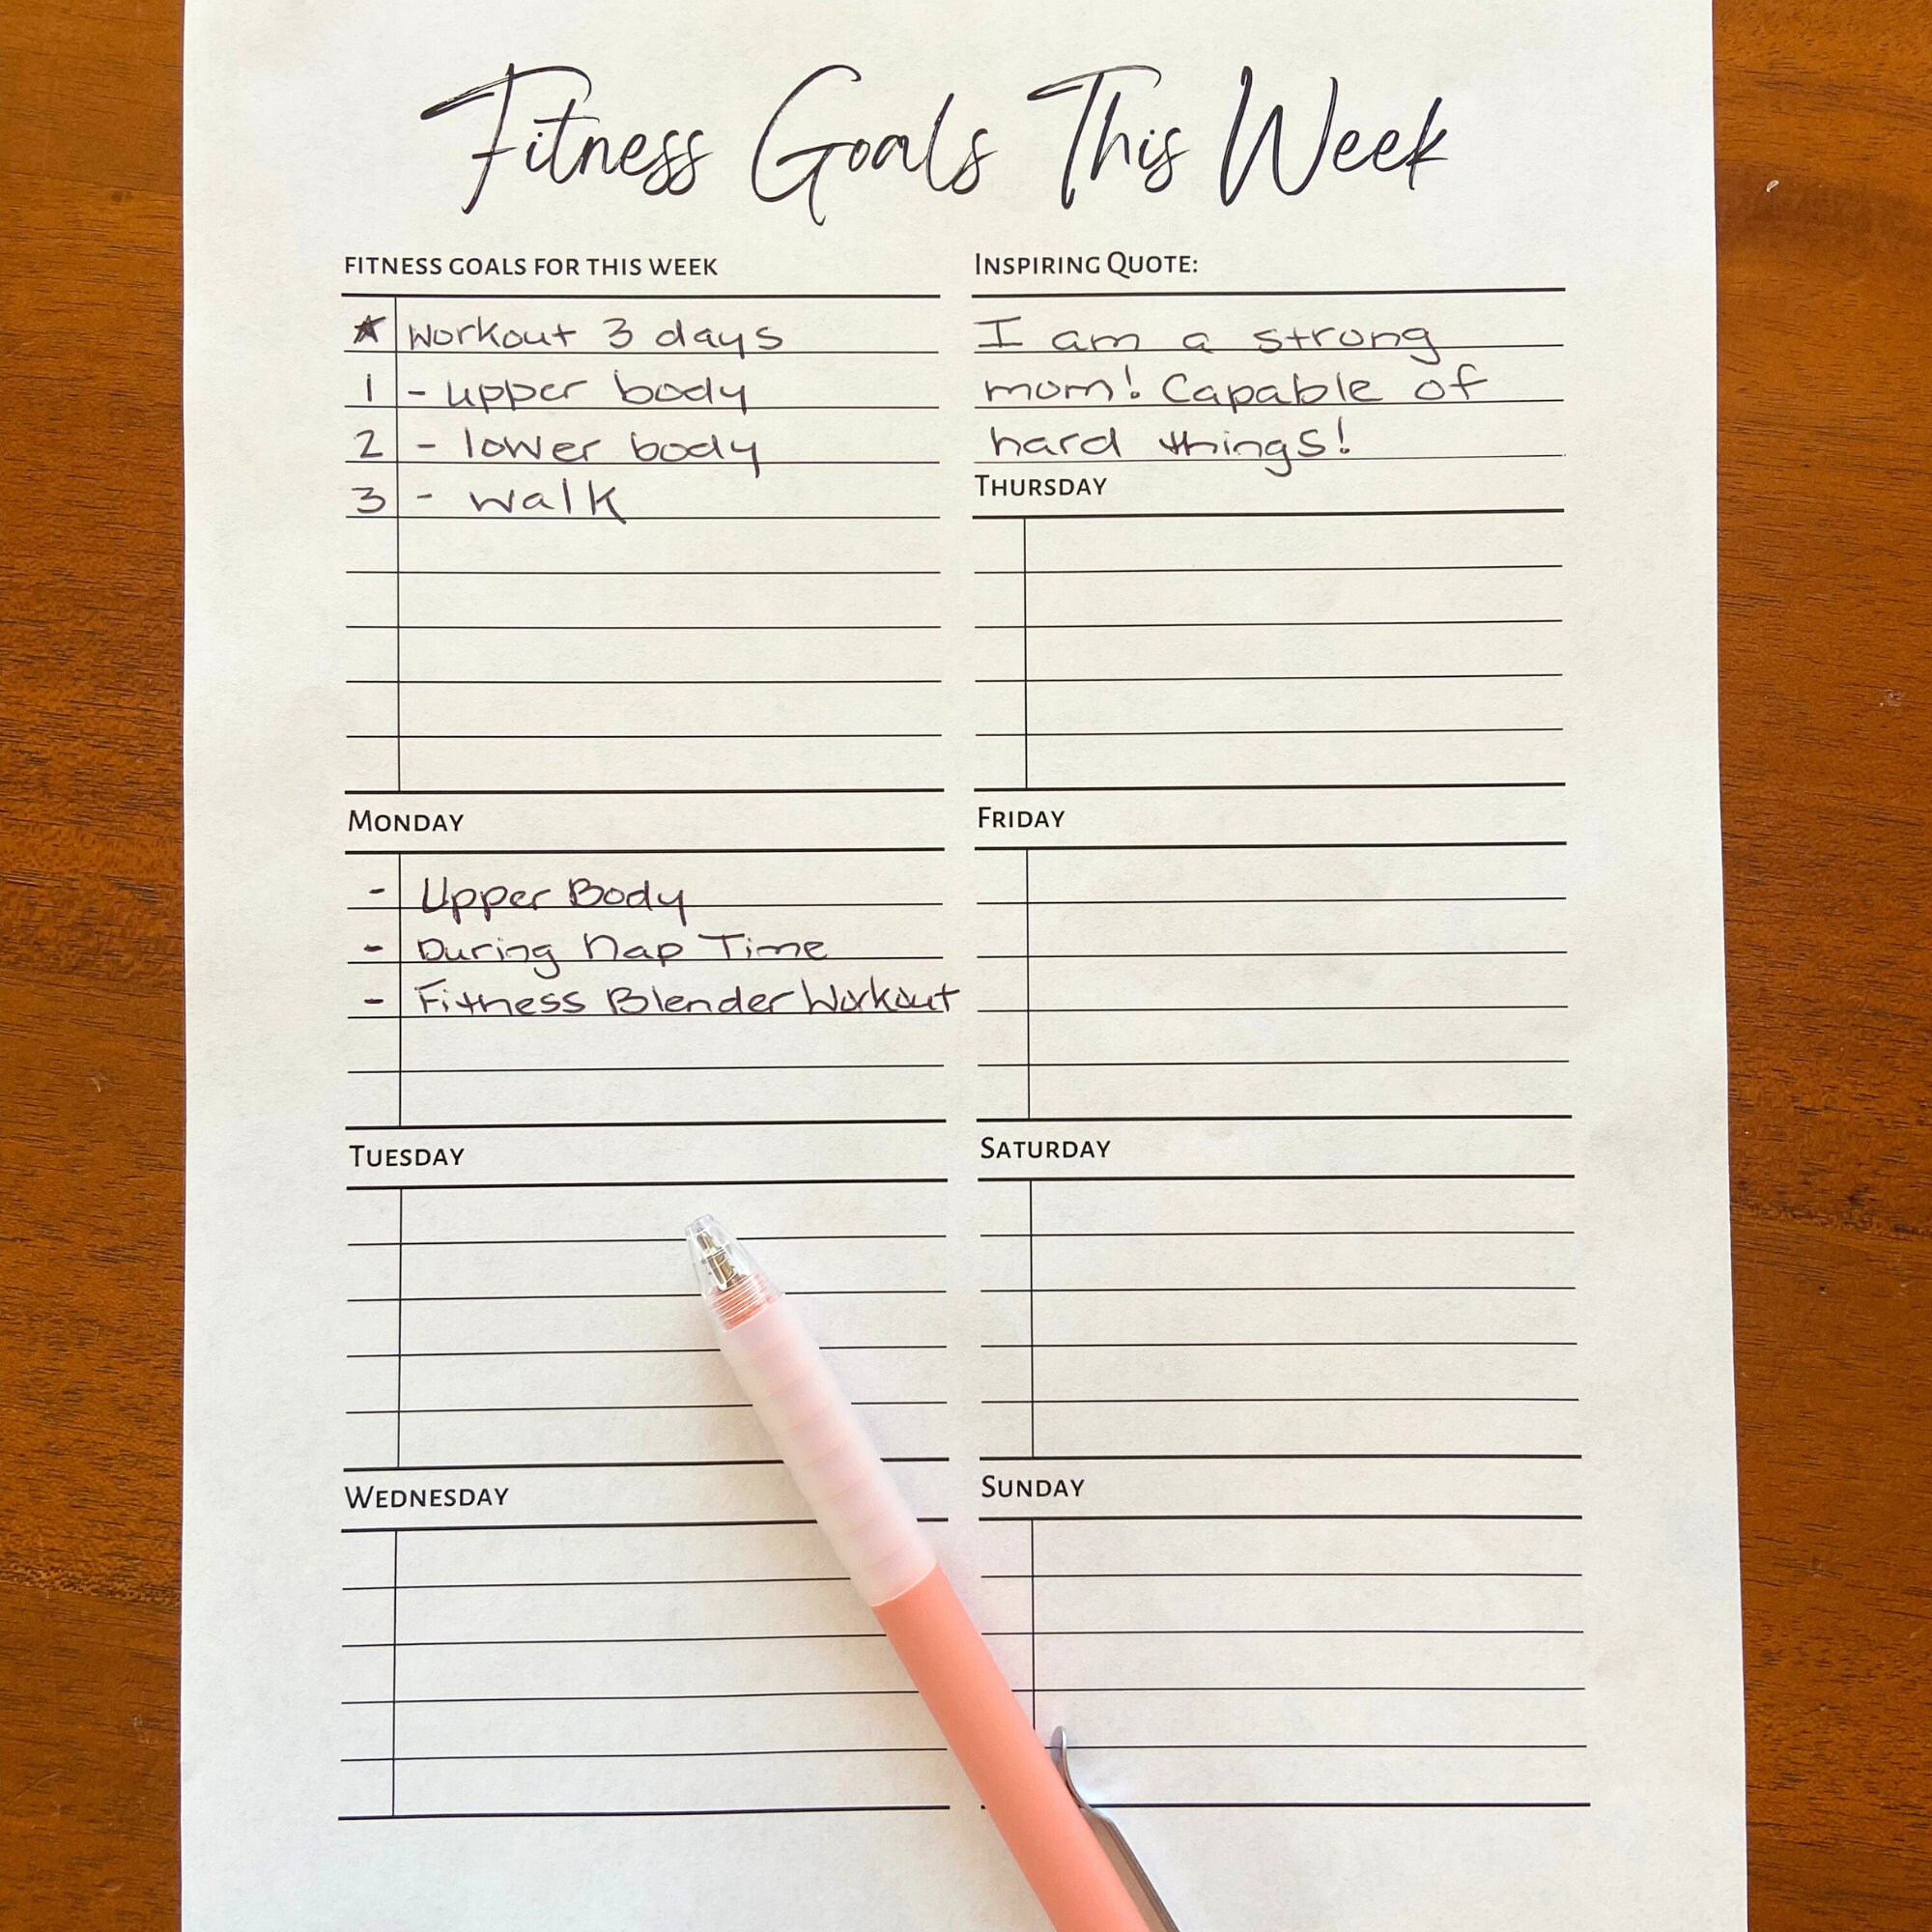 Fitness Goals This Week
FITNESS GOALS FOR THIS WEEK
★ Workout 3 days
1 - upper body
2 - lower body
3 - walk
INSPIRING QUOTE:
I am a strong
mom! Capable of
hard things!
MONDAY
- Upper Body
- During Nap Time
- Fitness Blender Workout
TUESDAY
WEDNESDAY
THURSDAY
FRIDAY
SATURDAY
SUNDAY